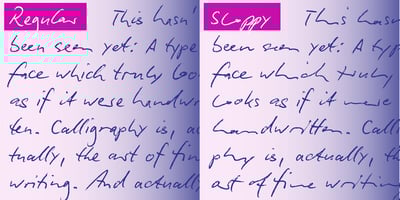 Regular This hasn'
been seen yet: A type
face which truly loo
as if it were handwri
ten. Calligraphy is, ac
tually, the art of fin
writing. And actuall
Sloppy This hasn
been seen yet: A typ
face which truly
looks as if it were
handwritten. Calli
phy is, actually, t
art of fine writin